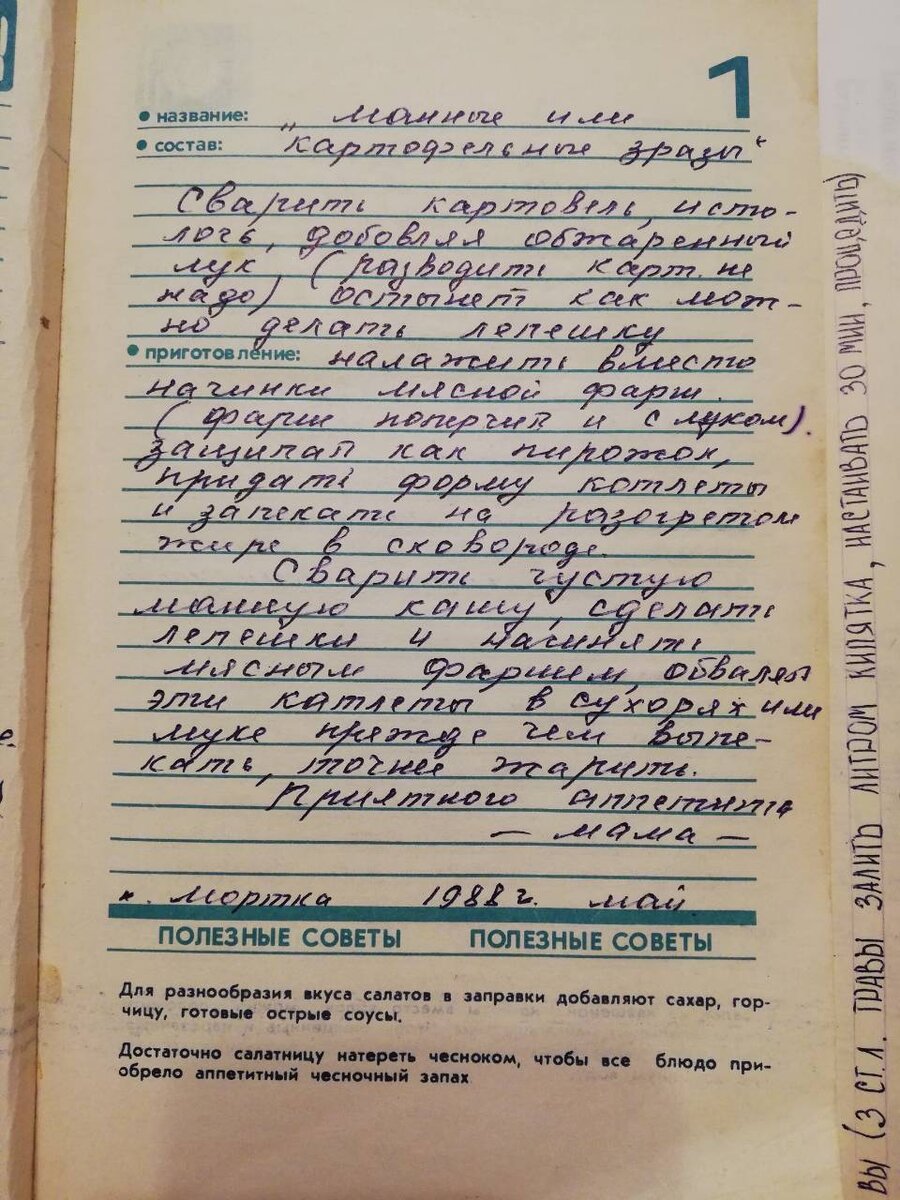 1
• название: „ манные или
• состав: картофельные зразы“
Сварить картовель, исто-
лочь, добовляя обжаренный
лук, (разводить карт. не
надо) остынет как мож-
но делать лепешку
• приготовление: налажить вместо
начинки мясной фарш.
(фарш поперчит и с луком).
защипат как пирожок,
придать форму котлеты
и запекать на разогретом
жире в сковороде.
Сварить густую
манную кашу, сделать
лепешки и начинять
мясным фаршем, обваляв
эти катлеты в сухорях или
муке прежде чем выпе-
кать, точнее жарить.
Приятного аппетита
— мама —
п. Мортка 1988 г. май
ПОЛЕЗНЫЕ СОВЕТЫ ПОЛЕЗНЫЕ СОВЕТЫ
Для разнообразия вкуса салатов в заправки добавляют сахар, гор-
чицу, готовые острые соусы.
Достаточно салатницу натереть чесноком, чтобы все блюдо при-
обрело аппетитный чесночный запах
вы (3 ст.л. травы залить литром кипятка, настаивать 30 мин, процедить)